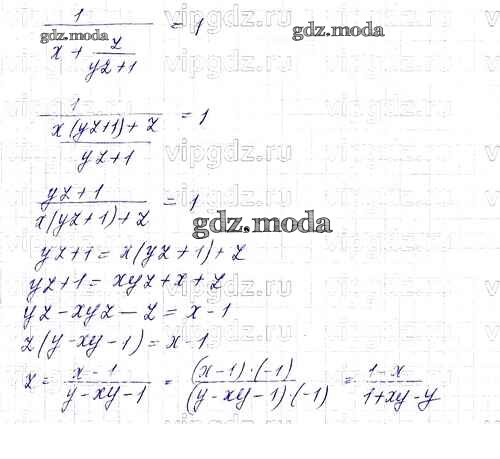 1/(x + z/(yz+1)) = 1
gdz.moda
gdz.moda
1/((x(yz+1)+z)/(yz+1)) = 1
(yz+1)/(x(yz+1)+z) = 1
gdz.moda
yz+1 = x(yz+1)+z
yz+1 = xyz+x+z
yz-xyz-z = x-1
z(y-xy-1) = x-1
z = (x-1)/(y-xy-1) = ((x-1)·(-1))/((y-xy-1)·(-1)) = (1-x)/(1+xy-y)
vipgdz.ru
vipgdz.ru
vipgdz.ru
vipgdz.ru
vipgdz.ru
vipgdz.ru